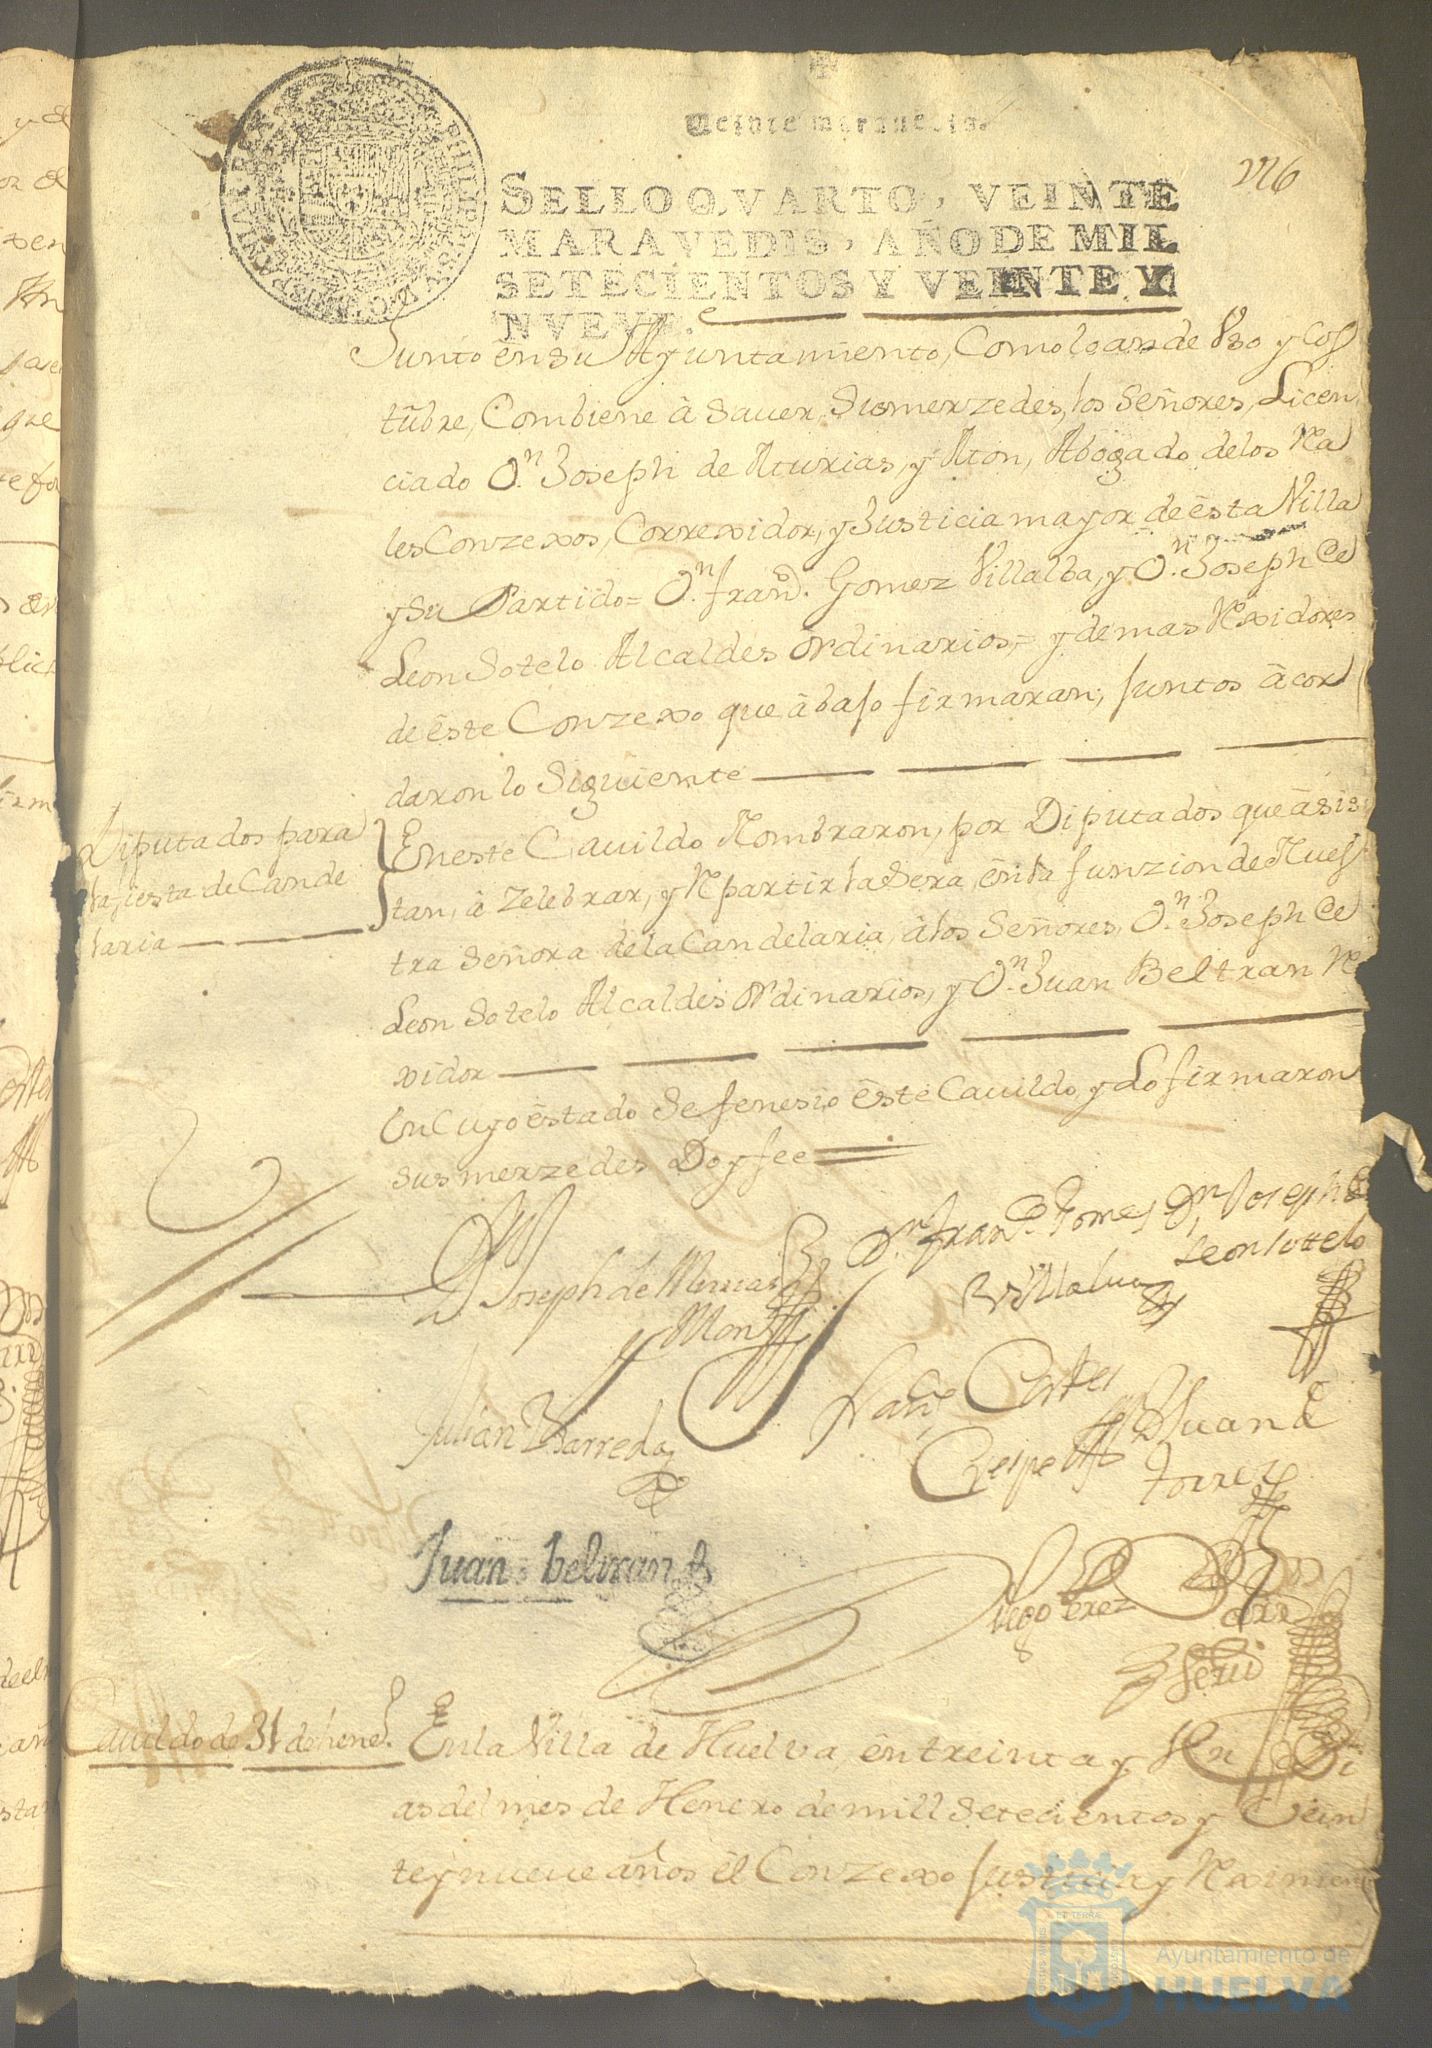 Veinte maravedis.
SELLO QVARTO, VEINTE
MARAVEDIS, AÑO DE MIL
SETECIENTOS Y VEINTE Y
NVEVE.
Junto en su Ayuntamiento, Como lo an de Vso y Cos
tubre, Combiene à saver, sus merzedes, los Señores, Licen
ciado Dn. Joseph de Aturias, y Mon, Abogado delos Rea
les Conzexos, Correxidor, y Justicia mayor de ésta Villa
y su Partido= Dn. Franco. Gomez Villalba, y Dn. Joseph de
Leon Sotelo Alcaldes ordinarios,= y demas Rexidores
de éste Conzexo que àbajo firmaran, juntos àcor
daron lo siguiente
Diputados para
la fiesta de Cande
laria
En este Cavildo Nombraron, por Diputados que àsis
tan, à Zelebrar, y Repartir la Sera, én la funzion de Nues
tra Señora de la Candelaria, à los Señores, Dn. Joseph de
Leon Sotelo Alcaldes ordinarios, y Dn. Juan Beltran Re
xidor
En Cuyo éstado se fenesio éste Cavildo, y Lo firmaron
sus merzedes Doy fee
Joseph de
Mon
Dn. Franco. Gomes
Villalva
Dn. Joseph de
Leon Sotelo
Julian Barreda
Cortes
Crespo
Juan de
Torres
Juan beltran
Diego Perez
Cavildo de 31 de heneo.
En la Villa de Huelva, én treinta y Un Di
as del mes de Henero de mill Setecientos y Vein
te y nueve años él Conzexo Justicia y Reximien
Ayuntamiento de
HUELVA